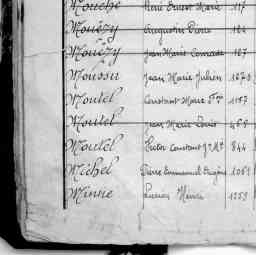 Mouche René Ernest Marie 117
Mouëzy Augustin Pierre 124
Mouëzy Jean Marie 127
Moussu Jean Marie Julien
Moutel Constant Marie Fçois 1157
Moutel Jean Marie Louis 465
Moutel Victor Constant J. M. 844
Michel Pierre Emmanuel Eugène 1051
Minne Lucien 1259